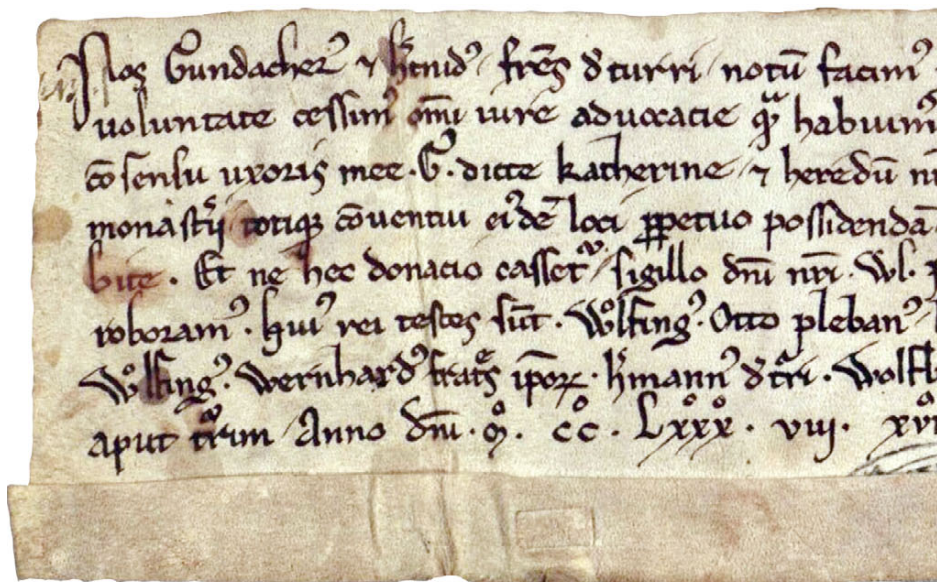 Nos Gundacherꝰ ⁊ hͤtnidꝰ fr̄es d̓ turri notū facimꝰ
voluntate cessimꝰ om̄i iure advocacie qᵃ habuimꝰ
cōsensu uxoris mee . G . dicte Katherine ⁊ heredū
monast̓ii totiqꝫ cōventui eiꝰdē loci ꝑpetuo possidendā
bite . Et ne hec donacio cassetᷣ sigillo dn̄i nr̄i . Wl .
roboramꝰ . huiꝰ rei testes sūt . Wͦlfingꝰ . Otto plebanꝰ
Wͦlfingꝰ . Wernhardꝰ frat̓s ip̄oꝝ . h̓mannꝰ d̓ tᷣri .
aput tᷣrim Anno dn̄i . Mͦ . CCͦ . Lxͦxͦxͦ . viii .